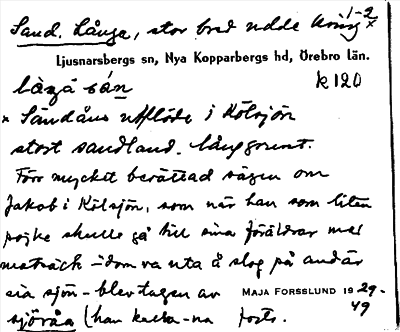 Sand, Långa, stor bred udde kring 1-2 x
Ljusnarsbergs sn, Nya Kopparbergs hd, Örebro län.
låŋgå sán k 120
x Sandåns utflöde i Kölsjön
stort sandland. långgrunt.
Förr mycket berättad sägen om
Jakob i Kölsjön, som när han som liten
pojke skulle gå till sina föräldrar med
matsäck - dom va uta å slog på andär
sia sjön - blev tagen av MAJA FORSSLUND 1929-
sjöråa (han kalla-na forts. 49